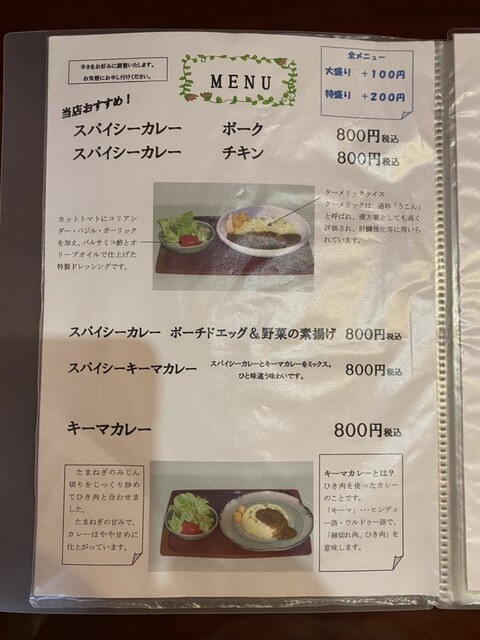 辛さをお好みに調整いたします。
お気軽にお申し付けください。
MENU
全メニュー
大盛り +100円
特盛り +200円
当店おすすめ！
スパイシーカレー ポーク 800円税込
スパイシーカレー チキン 800円税込
カットトマトにコリアン
ダー・バジル・ガーリック
を加え、バルサミコ酢とオ
リーブオイルで仕上げた
特製ドレッシングです。
ターメリックライス
ターメリックは、通称「うこん」
と呼ばれ、漢方薬としても高く
評価され、肝臓強化等に用いら
れています。
スパイシーカレー ポーチドエッグ＆野菜の素揚げ 800円税込
スパイシーキーマカレー スパイシーカレーとキーマカレーをミックス。 800円税込
ひと味違う味わいです。
キーマカレー 800円税込
たまねぎのみじん
切りをじっくり炒め
てひき肉と合わせま
した。
たまねぎの甘みで、
カレーはやや甘めに
仕上がっています。
キーマカレーとは？
ひき肉を使ったカレー
のことです。
「キーマ」・・・ヒンディ
ー語・ウルドゥー語で、
「細切れ肉、ひき肉」を
意味します。